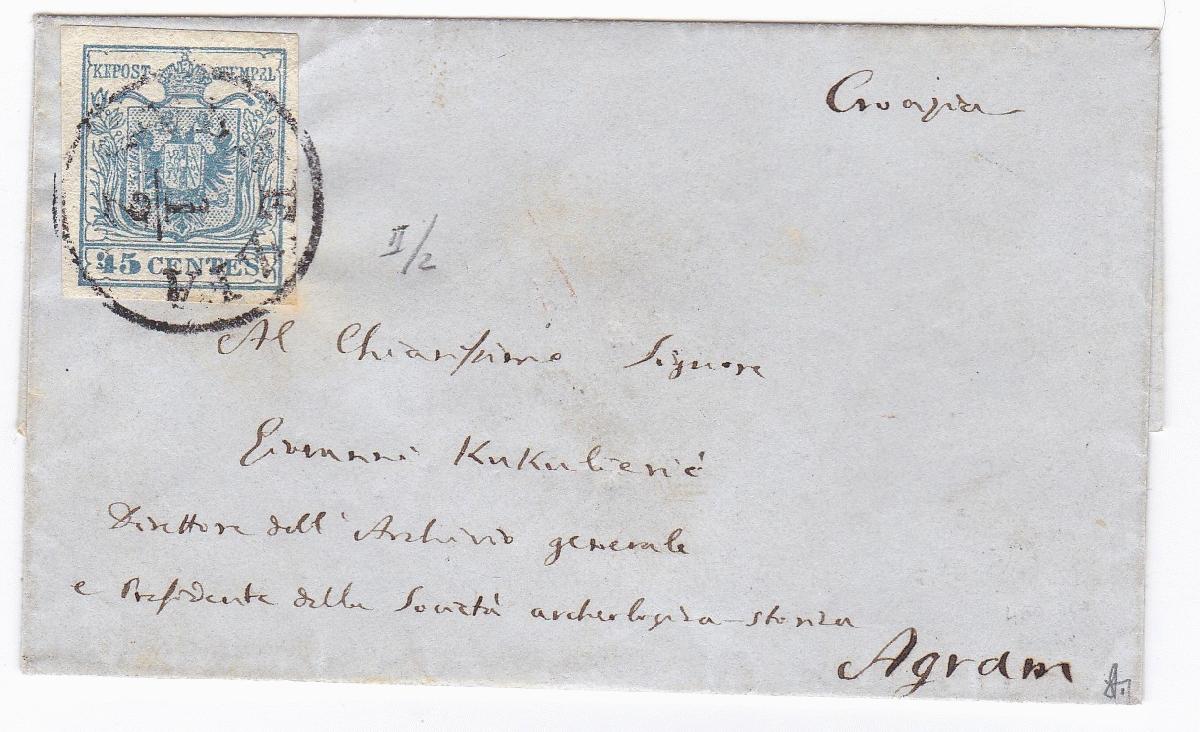 KEPOST STEMPEL
45 CENTES.
Croazia
II/2
Al Chiarissimo Signore
Giovanni Kukulievié
Direttore dell' Archivio generale
e Presidente della Società archeologica-storica
Agram